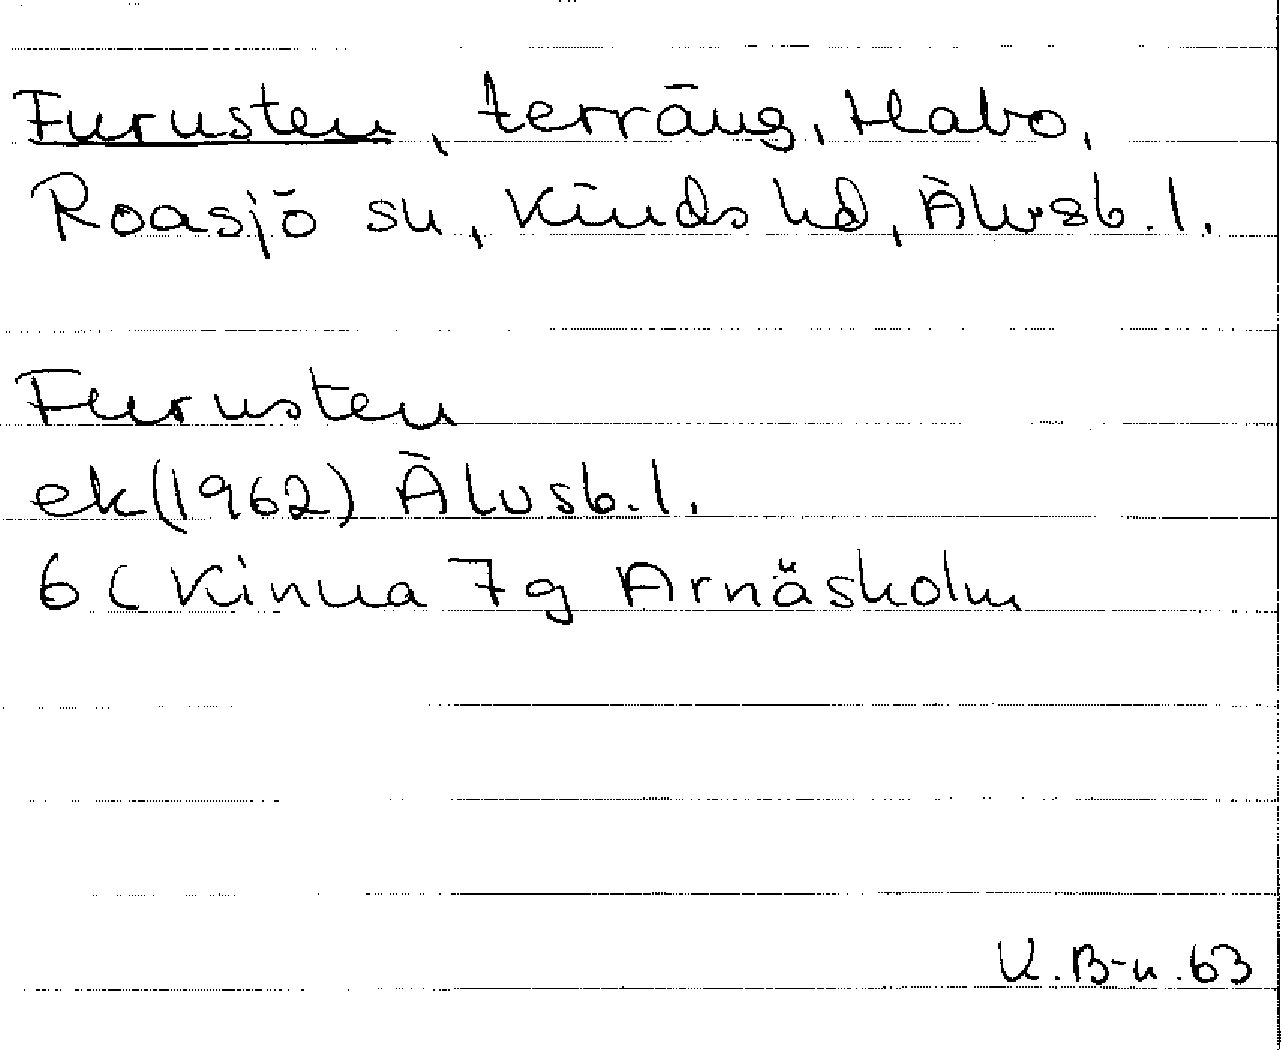 Furusten, terräng, Habo,
Roasjö sn, Kinds hd, Älvsb. l.
Furusten
ek (1962) Älvsb. l.
6 C Kinna 7 g Arnäsholm
K. B-n. 63